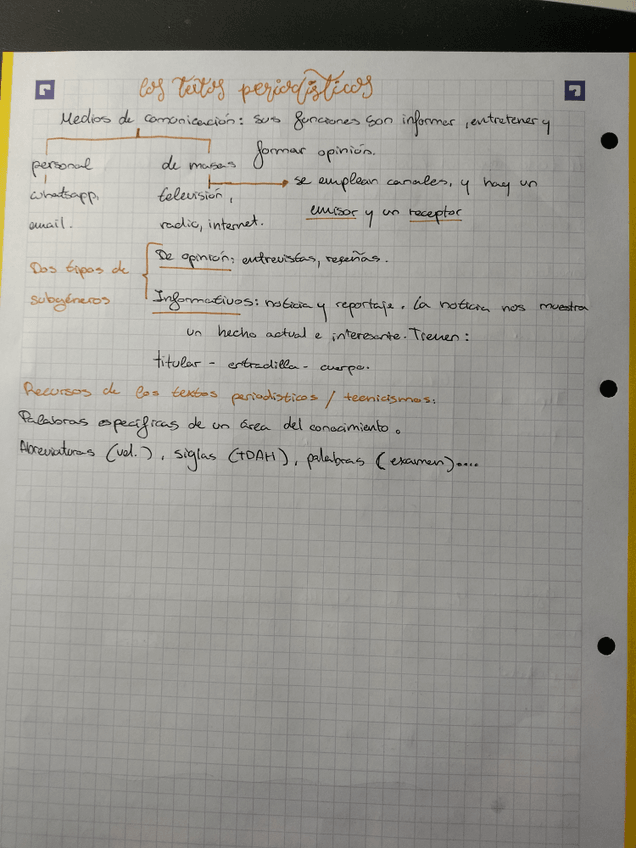 los textos periodísticos
Medios de comunicación: sus funciones son informer, entretener y
formar opinión.
personal
de masas
se emplean canales, y hay un
whatsapp,
televisión,
emisor y un receptor
email.
radio, internet.
De opinión: entrevistas, reseñas.
Dos tipos de
subgéneros
Informativos: noticia y reportaje. La noticia nos muestra
un hecho actual e interesante. Tienen:
titular - entradilla - cuerpo.
Recursos de los textos periodísticos / tecnicismos:
Palabras específicas de un área del conocimiento.
Abreviaturas (vol.), siglas (TDAH), palabras (examen)....